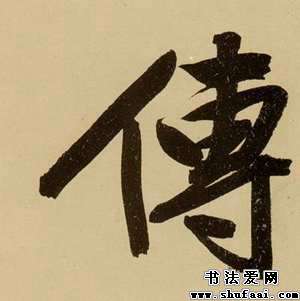 傳
书法爱网
www.shufaai.com